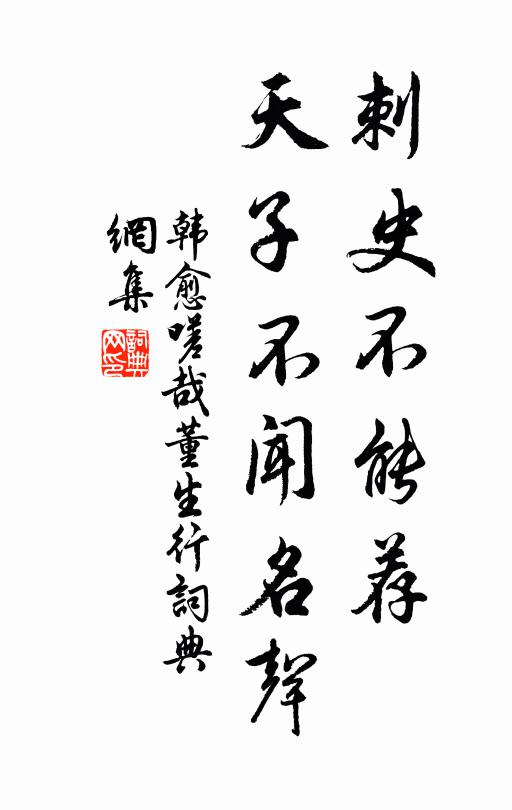 刺史不能荐
天子不闻名聲
韩愈嗟哉董生行詞典
網集
詞典
网印